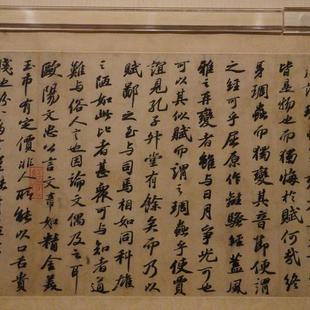 皆是物也而獨悔於賦何哉終
身琱蟲而獨變其音節便謂
之經可乎屈原作離騷經蓋風
雅之再變者雖與日月爭光可也
可以其似賦而謂之琱蟲乎使賈
誼見孔子升堂有餘矣而乃以
賦鄙之至與司馬相如同科雄
之陋如此比者甚衆可與知者道
難與俗人言也因論文偶及之耳
歐陽文忠公言文章如精金美
玉市有定價非人所能以口舌貴
賤也